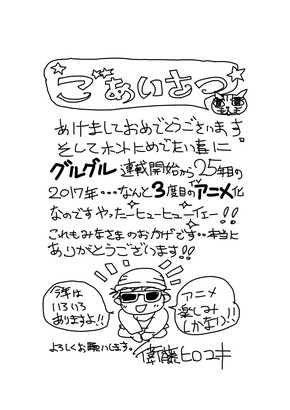 ごあいさつ
あけましておめでとうございます。
そしてホントにめでたい事に
グルグル連載開始から25年目の
2017年・・・なんと3度目のアニメ化
なのですやったーヒューヒューイェー!!
これもみなさまのおかげです・・本当に
ありがとうございます!!
今年は
いろいろ
ありますよ!!
アニメ
楽しみ
しかない!!
よろしくお願いします。
衛藤ヒロユキ